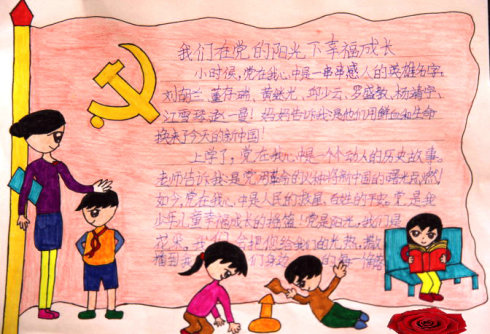 我们在党的阳光下幸福成长
小时候,党在我心中是一串串感人的英雄名字,
刘胡兰、董存瑞、黄继光、邱少云、罗盛教、杨靖宇、
江雪琴、赵一曼!妈妈告诉我是他们用鲜血和生命
换来了今天的新中国!
上学了,党在我心中是一个个动人的历史故事。
老师告诉我是党用革命的火种将新中国的曙光点燃!
如今,党在我心中是人民的救星,百姓的下。党是我
少年儿童幸福成长的摇篮!党是阳光,我们是
花朵,我们会把你给我们的光热,
播 我们身边的每一个